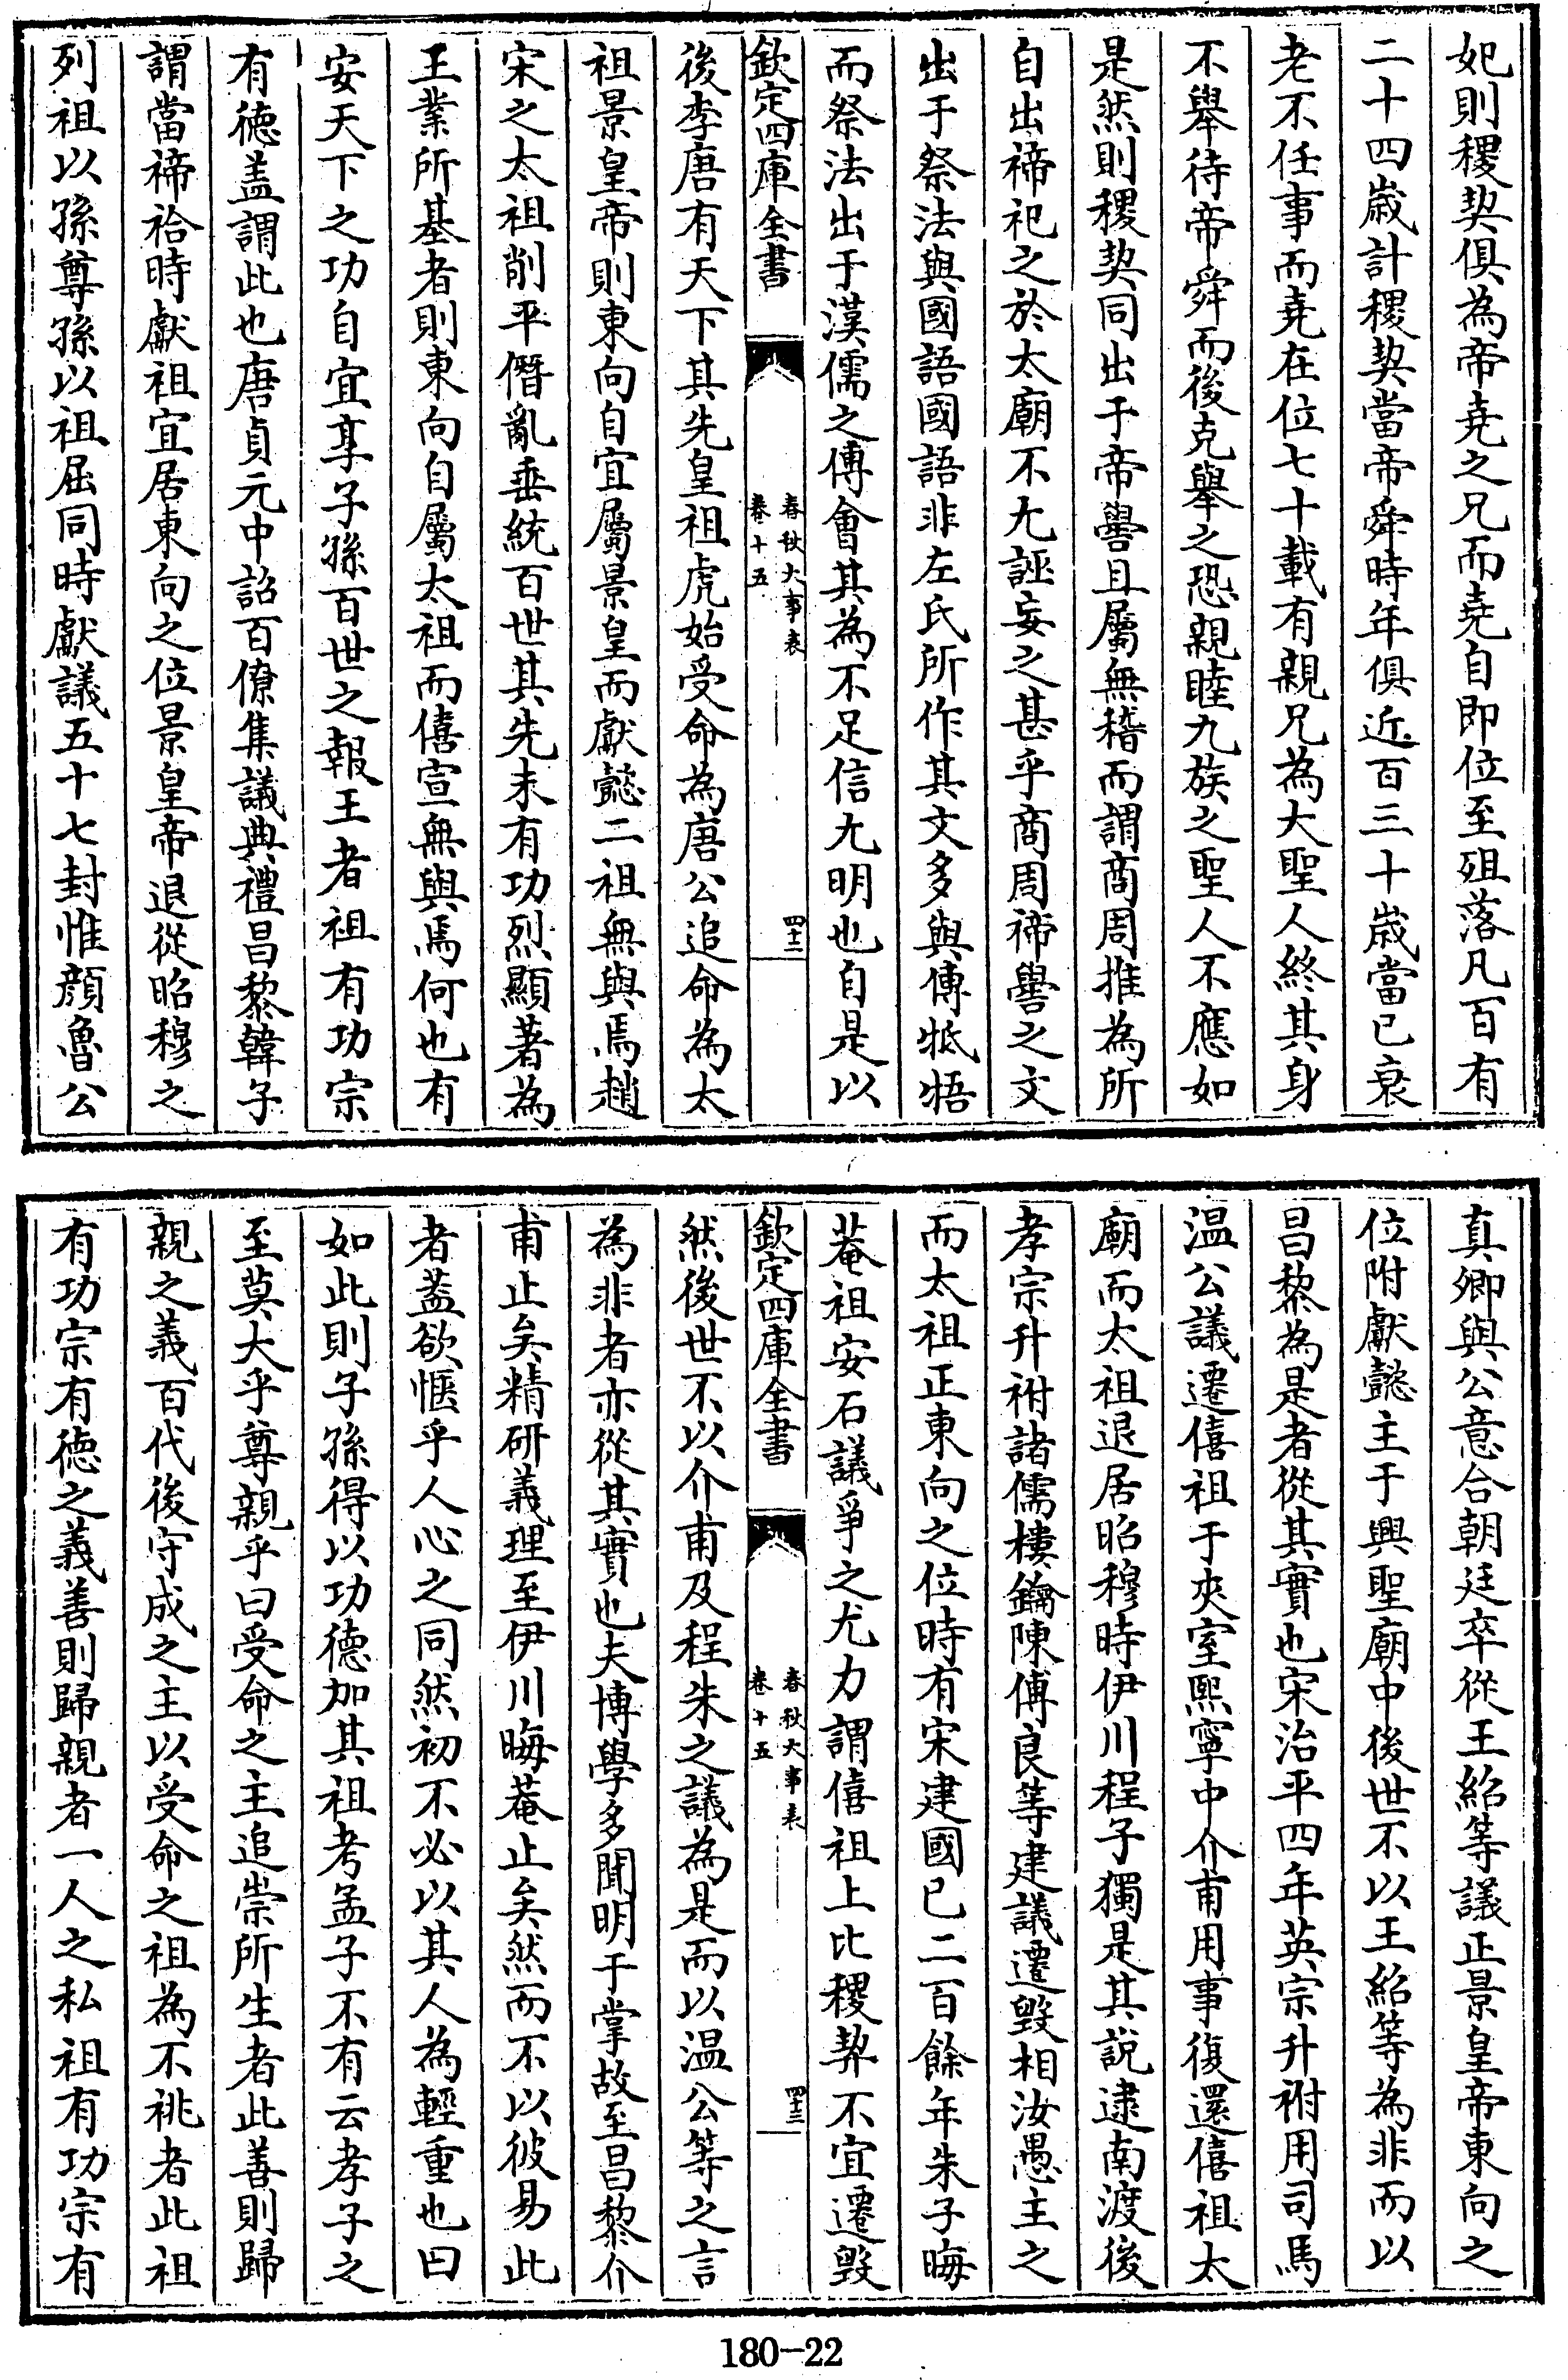 妃則稷契俱為帝堯之兄而堯自即位至殂落凡百有
二十四歲計稷契當帝舜時年俱近百三十歲當已衰
老不任事而堯在位七十載有親兄為大聖人終其身
不舉待帝舜而後克舉之恐親睦九族之聖人不應如
是然則稷契同出于帝嚳且屬無稽而謂商周推為所
自出禘祀之於太廟不尤誣妄之甚乎商周禘嚳之文
出于祭法與國語國語非左氏所作其文多與傳牴牾
而祭法出于漢儒之傅會其為不足信尤明也自是以
欽定四庫全書
春秋大事表
卷十五
四十二
後李唐有天下其先皇祖虎始受命為唐公追命為太
祖景皇帝則東向自宜屬景皇而獻懿二祖無與焉趙
宋之太祖削平僭亂垂統百世其先未有功烈顯著為
王業所基者則東向自屬太祖而僖宣無與焉何也有
安天下之功自宜享子孫百世之報王者祖有功宗
有德盖謂此也唐貞元中詔百僚集議典禮昌黎韓子
謂當禘祫時獻祖宜居東向之位景皇帝退從昭穆之
列祖以孫尊孫以祖屈同時獻議五十七封惟顏魯公
真卿與公意合朝廷卒從王紹等議正景皇帝東向之
位附獻懿主于興聖廟中後世不以王紹等為非而以
昌黎為是者從其實也宋治平四年英宗升祔用司馬
溫公議遷僖祖于夾室熙寧中介甫用事復還僖祖太
廟而太祖退居昭穆時伊川程子獨是其說逮南渡後
孝宗升祔諸儒樓鑰陳傅良等建議遷毀相汝愚主之
而太祖正東向之位時有宋建國已二百餘年朱子晦
菴祖安石議爭之尤力謂僖祖上比稷契不宜遷毀
欽定四庫全書
春秋大事表
卷十五
四十三
然後世不以介甫及程朱之議為是而以溫公等之言
為非者亦從其實也夫博學多聞明于掌故至昌黎介
甫止矣精研義理至伊川晦菴止矣然而不以彼易此
者蓋欲愜乎人心之同然初不必以其人為輕重也曰
如此則子孫得以功德加其祖考孟子不有云孝子之
至莫大乎尊親乎曰受命之主追崇所生者此善則歸
親之義百代後守成之主以受命之祖為不祧者此祖
有功宗有德之義善則歸親者一人之私祖有功宗有
180-22